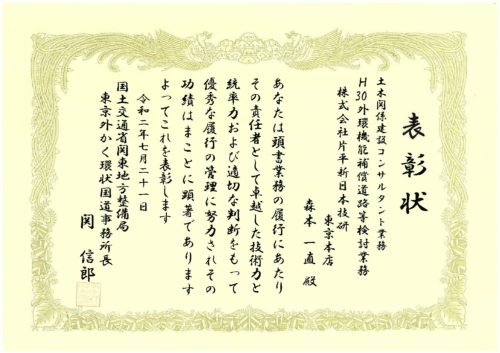 表彰状
土木関係建設コンサルタント業務
H30外環機能補償道路等検討業務
株式会社片平新日本技研
東京本店
森本 一直 殿
あなたは頭書業務の履行にあたり
その責任者として卓越した技術力と
統率力および適切な判断をもって
優秀な履行の管理に努力されその
功績はまことに顕著であります
よってこれを表彰します
令和二年七月二十一日
国土交通省関東地方整備局
東京外かく環状国道事務所長
関 信郎